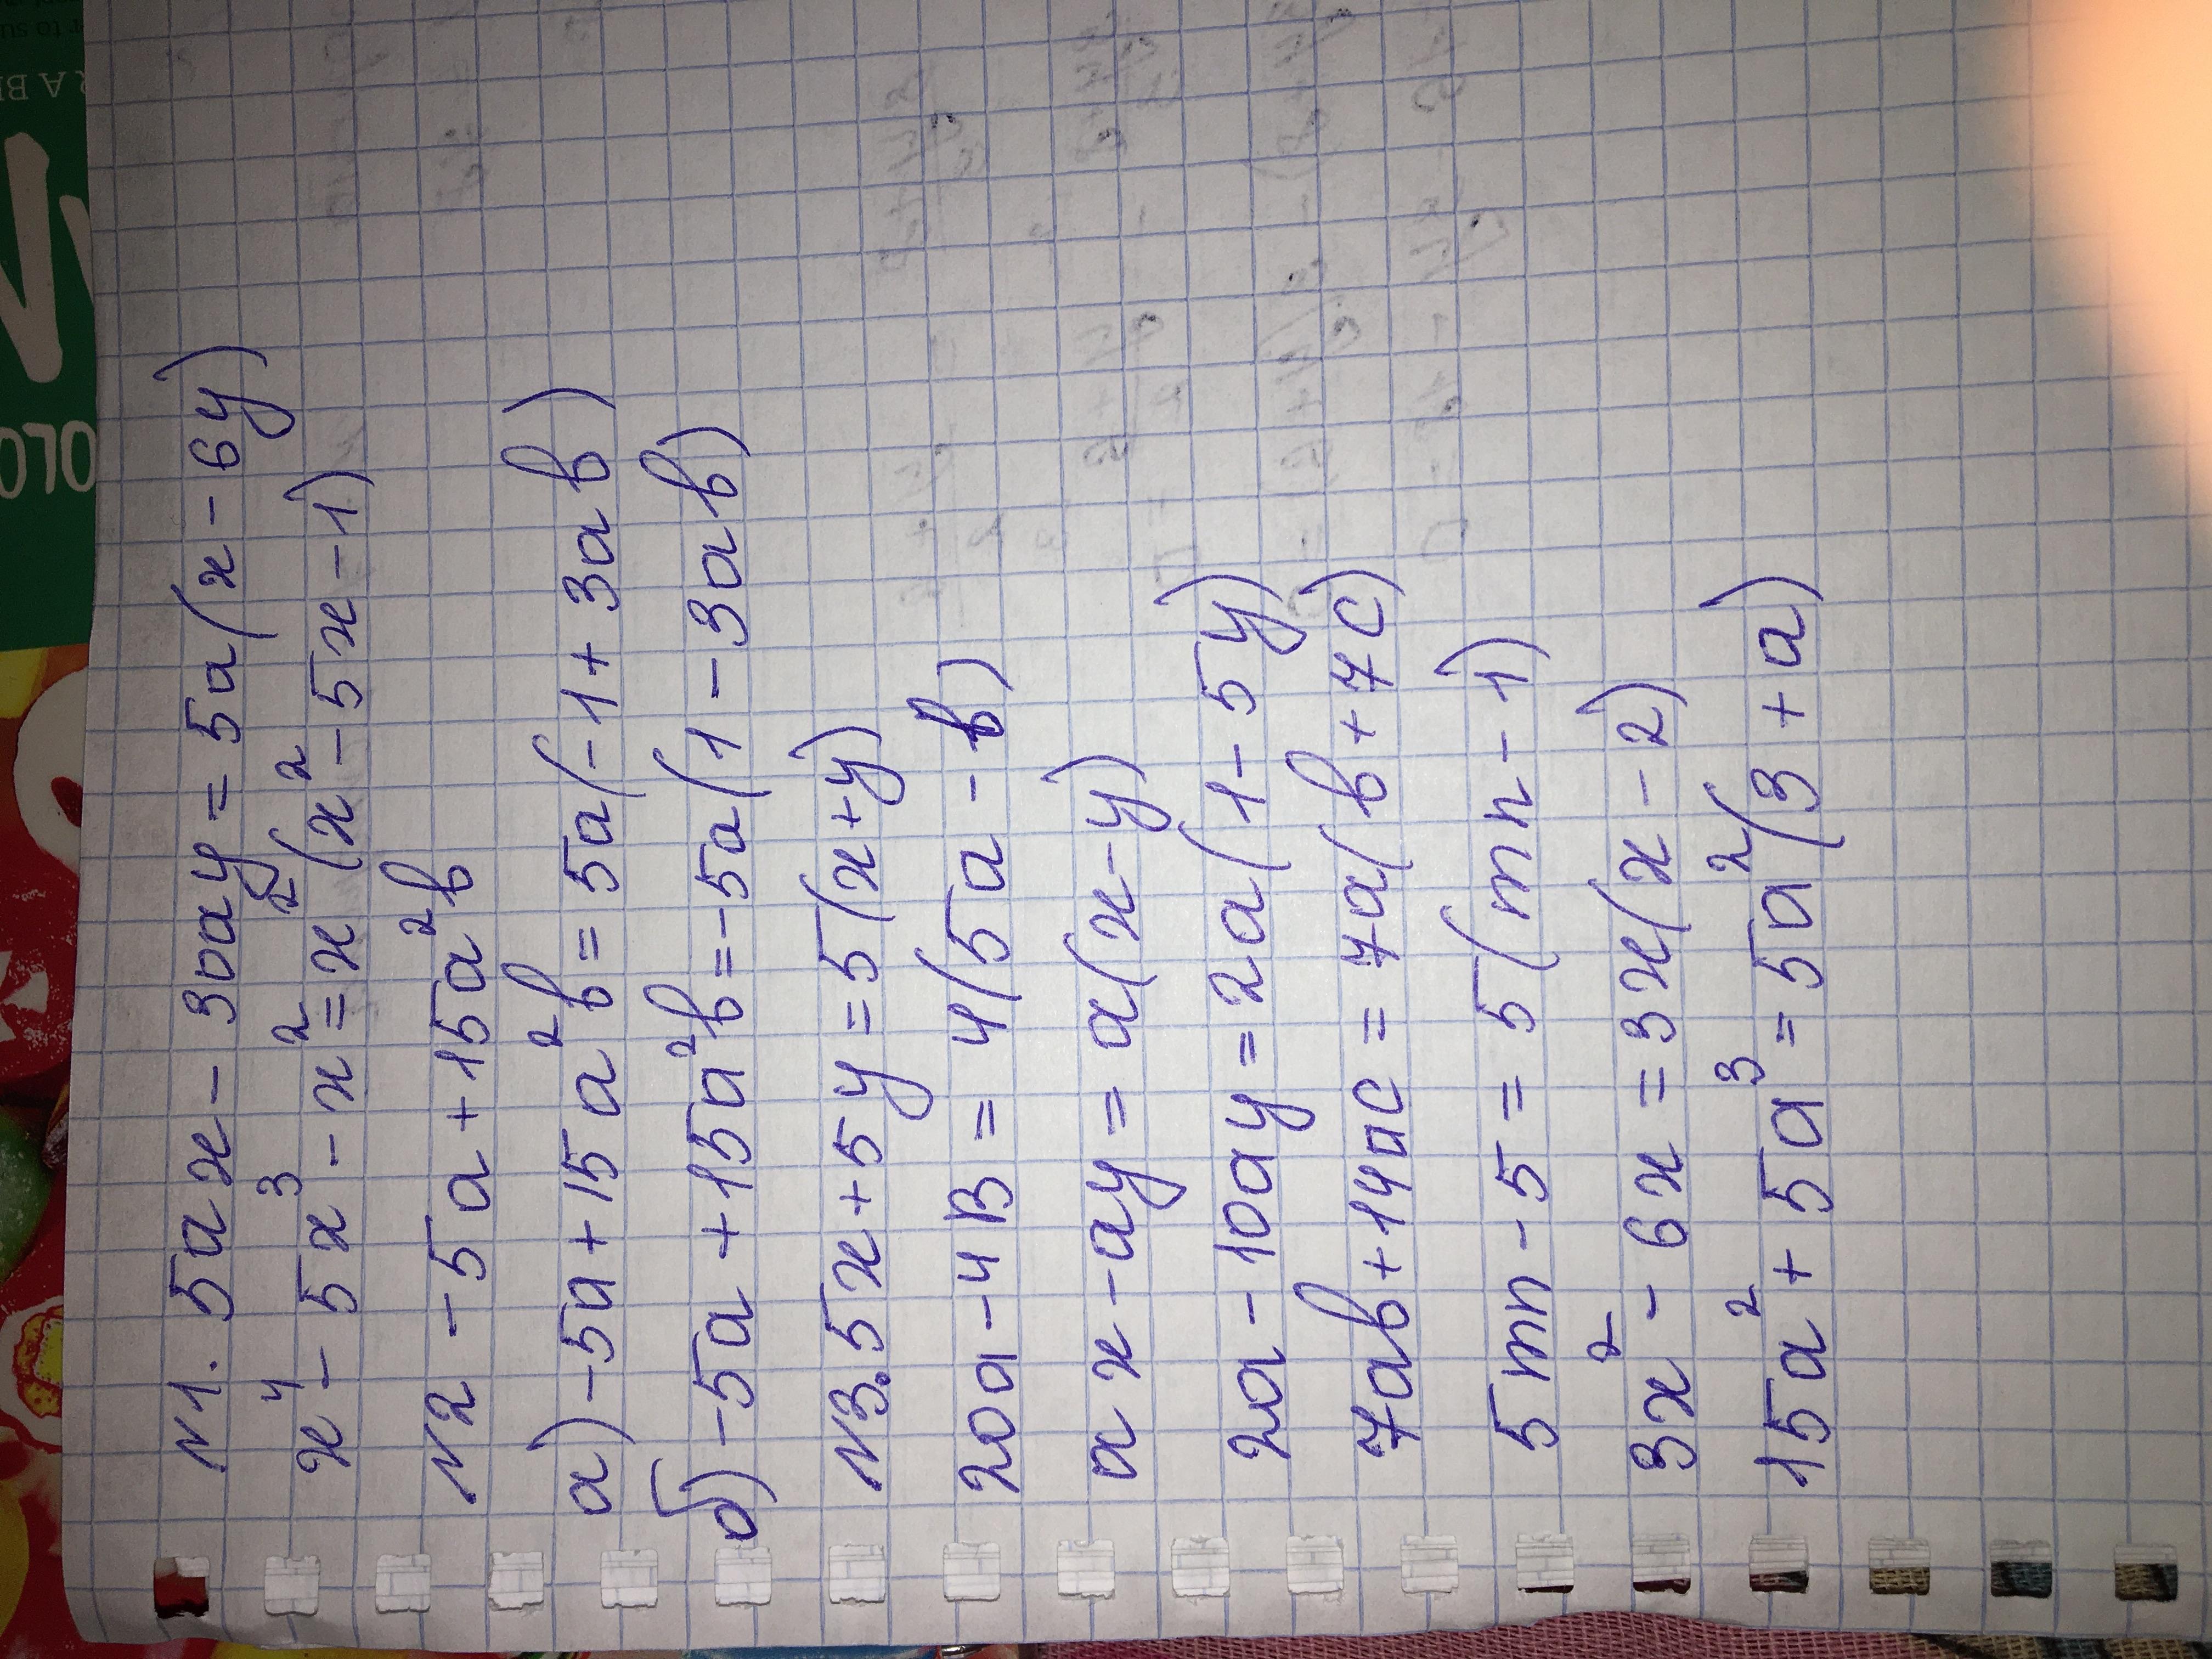 N1. 5ax - 30ay = 5a(x - 6y)
x⁴ - 5x³ - x² = x²(x² - 5x - 1)
N2 - 5a + 15a²b
а) -5a + 15a²b = 5a(-1 + 3ab)
б) -5a + 15a²b = -5a(1 - 3ab)
N3. 5x + 5y = 5(x + y)
20a - 4B = 4(5a - b)
ax - ay = a(x - y)
2a - 10ay = 2a(1 - 5y)
7ab + 14ac = 7a(b + 7c)
5mn - 5 = 5(mn - 1)
3x² - 6x = 3x(x - 2)
15a² + 5a³ = 5a²(3 + a)